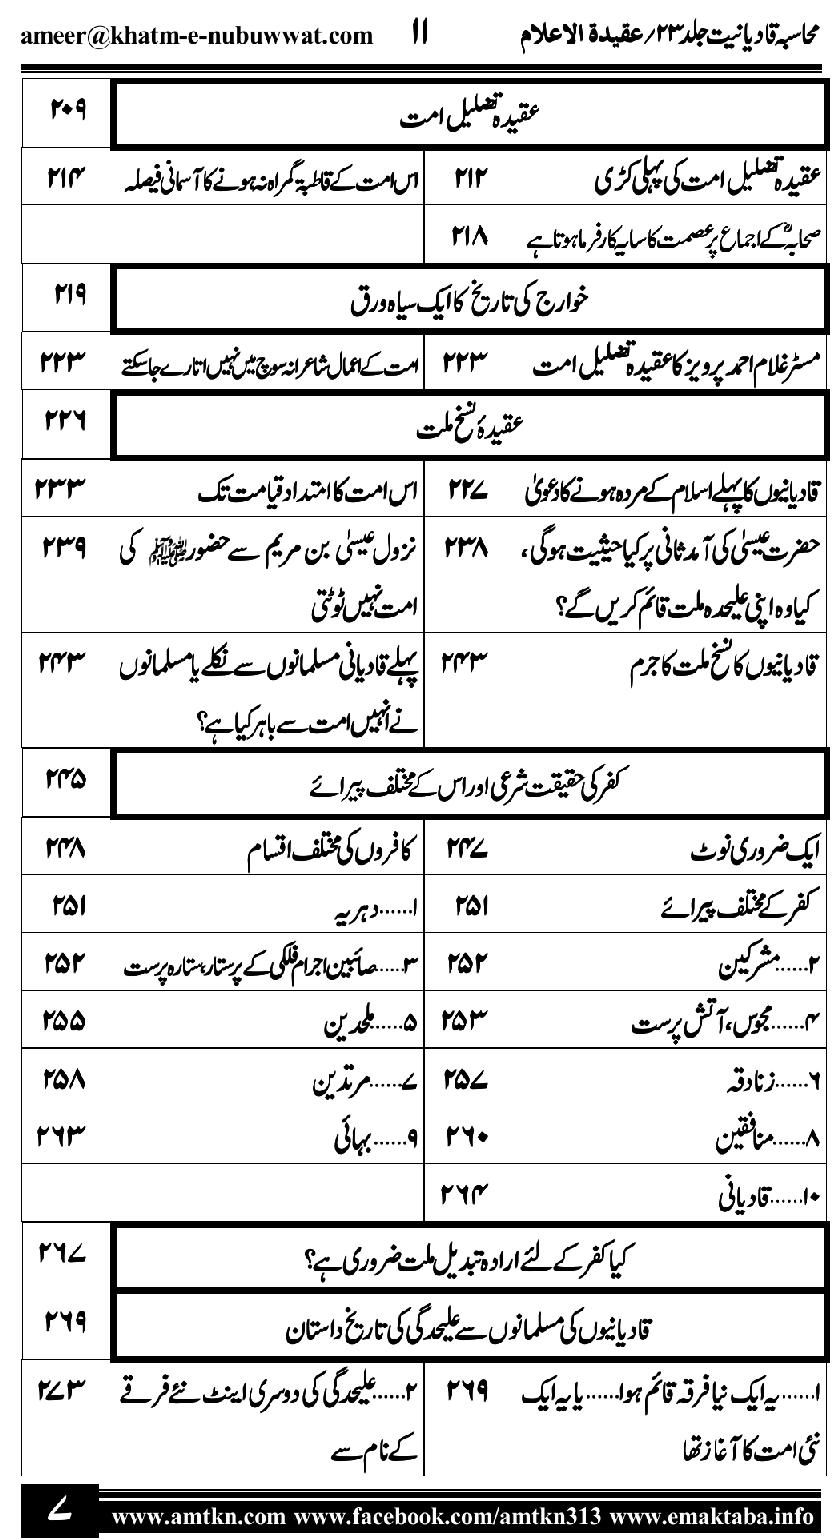 محاسبہ قادیانیت جلد ۲۳ / عقیدۃ الاعلام ۱۱ ameer@khatm-e-nubuwwat.com
عقیدہ تضلیل امت ۲۰۹
عقیدہ تضلیل امت کی پہلی کڑی ۲۱۲ اس امت کے قاطبۃً گمراہ نہ ہونے کا آسمانی فیصلہ ۲۱۴
صحابہؓ کے اجماع پر عصمت کا سایہ کارفرما ہوتا ہے ۲۱۸
خوارج کی تاریخ کا ایک سیاہ ورق ۲۱۹
مسٹر غلام احمد پرویز کا عقیدہ تضلیل امت ۲۲۳ امت کے اعمال شاعرانہ سوچ میں نہیں اتارے جاسکتے ۲۲۳
عقیدۂ نسخ ملت ۲۲۶
قادیانیوں کا پہلے اسلام کے مردہ ہونے کا دعویٰ ۲۲۷ اس امت کا امتداد قیامت تک ۲۳۳
حضرت عیسیٰ کی آمد ثانی پر کیا حیثیت ہوگی، ۲۳۸ نزول عیسیٰ بن مریم سے حضور ﷺ کی ۲۳۹
کیا وہ اپنی علیحدہ ملت قائم کریں گے؟ امت نہیں ٹوٹتی
قادیانیوں کا نسخ ملت کا جرم ۲۴۳ پہلے قادیانی مسلمانوں سے نکلے یا مسلمانوں ۲۴۳
نے انہیں امت سے باہر کیا ہے؟
کفر کی حقیقت شرعی اور اس کے مختلف پیرائے ۲۴۵
ایک ضروری نوٹ ۲۴۷ کافروں کی مختلف اقسام ۲۴۸
کفر کے مختلف پیرائے ۲۵۱ ۱......دہریہ ۲۵۱
۲......مشرکین ۲۵۲ ۳......صائبین اجرام فلکی کے پرستار، ستارہ پرست ۲۵۲
۴......مجوس، آتش پرست ۲۵۳ ۵......ملحدین ۲۵۵
۶......زنادقہ ۲۵۷ ۷......مرتدین ۲۵۸
۸......منافقین ۲۶۰ ۹......بہائی ۲۶۳
۱۰......قادیانی ۲۶۴
کیا کفر کے لئے ارادہ تبدیل ملت ضروری ہے؟ ۲۶۷
قادیانیوں کی مسلمانوں سے علیحدگی کی تاریخ داستان ۲۶۹
۱......یہ ایک نیا فرقہ قائم ہوا......یا یہ ایک ۲۶۹ ۲......علیحدگی کی دوسری اینٹ نئے فرقے ۲۷۳
نئی امت کا آغاز تھا کے نام سے
۷ www.amtkn.com www.facebook.com/amtkn313 www.emaktaba.info